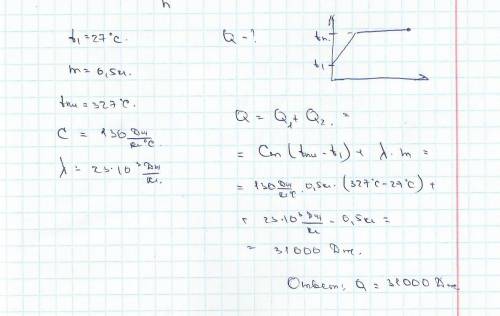 t₁ = 27°C.
m = 0,5кг.
tпл = 327°C.
C = 130 Дж/кг°C.
λ = 25·10³ Дж/кг.
Q - ?
tпл
t₁
Q = Q₁ + Q₂ =
= Cm (tпл - t₁) + λ·m =
= 130 Дж/кг°C · 0,5кг · (327°C - 27°C) +
+ 25·10³ Дж/кг · 0,5кг =
= 32000 Дж.
Ответ: Q = 32000 Дж